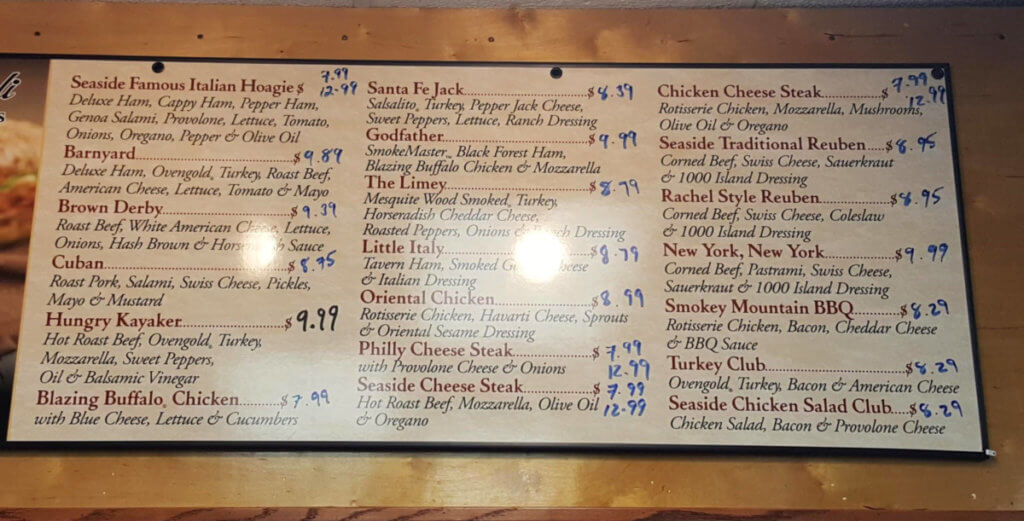 li
s
Seaside Famous Italian Hoagie $ 7.99
12.99
Deluxe Ham, Cappy Ham, Pepper Ham,
Genoa Salami, Provolone, Lettuce, Tomato,
Onions, Oregano, Pepper & Olive Oil
Barnyard........................$ 9.89
Deluxe Ham, Ovengold, Turkey, Roast Beef,
American Cheese, Lettuce, Tomato & Mayo
Brown Derby........................$ 9.39
Roast Beef, White American Cheese, Lettuce,
Onions, Hash Brown & Horseradish Sauce
Cuban........................$ 8.75
Roast Pork, Salami, Swiss Cheese, Pickles,
Mayo & Mustard
Hungry Kayaker........................$ 9.99
Hot Roast Beef, Ovengold, Turkey,
Mozzarella, Sweet Peppers,
Oil & Balsamic Vinegar
Blazing Buffalo Chicken........$ 7.99
with Blue Cheese, Lettuce & Cucumbers
Santa Fe Jack........................$ 8.39
Salsalito, Turkey, Pepper Jack Cheese,
Sweet Peppers, Lettuce, Ranch Dressing
Godfather........................$ 9.99
SmokeMaster, Black Forest Ham,
Blazing Buffalo Chicken & Mozzarella
The Limey........................$ 8.79
Mesquite Wood Smoked, Turkey,
Horseradish Cheddar Cheese,
Roasted Peppers, Onions & Ranch Dressing
Little Italy........................$ 8.79
Tavern Ham, Smoked Cheese
& Italian Dressing
Oriental Chicken........................$ 8.99
Rotisserie Chicken, Havarti Cheese, Sprouts
& Oriental Sesame Dressing
Philly Cheese Steak................$ 7.99
with Provolone Cheese & Onions 12.99
Seaside Cheese Steak..............$ 7.99
Hot Roast Beef, Mozzarella, Olive Oil 12.99
& Oregano
Chicken Cheese Steak..............$ 7.99
12.99
Rotisserie Chicken, Mozzarella, Mushrooms,
Olive Oil & Oregano
Seaside Traditional Reuben......$ 8.95
Corned Beef, Swiss Cheese, Sauerkraut
& 1000 Island Dressing
Rachel Style Reuben................$ 8.95
Corned Beef, Swiss Cheese, Coleslaw
& 1000 Island Dressing
New York, New York................$ 9.99
Corned Beef, Pastrami, Swiss Cheese,
Sauerkraut & 1000 Island Dressing
Smokey Mountain BBQ..........$ 8.29
Rotisserie Chicken, Bacon, Cheddar Cheese
& BBQ Sauce
Turkey Club........................$ 8.29
Ovengold, Turkey, Bacon & American Cheese
Seaside Chicken Salad Club....$ 8.29
Chicken Salad, Bacon & Provolone Cheese